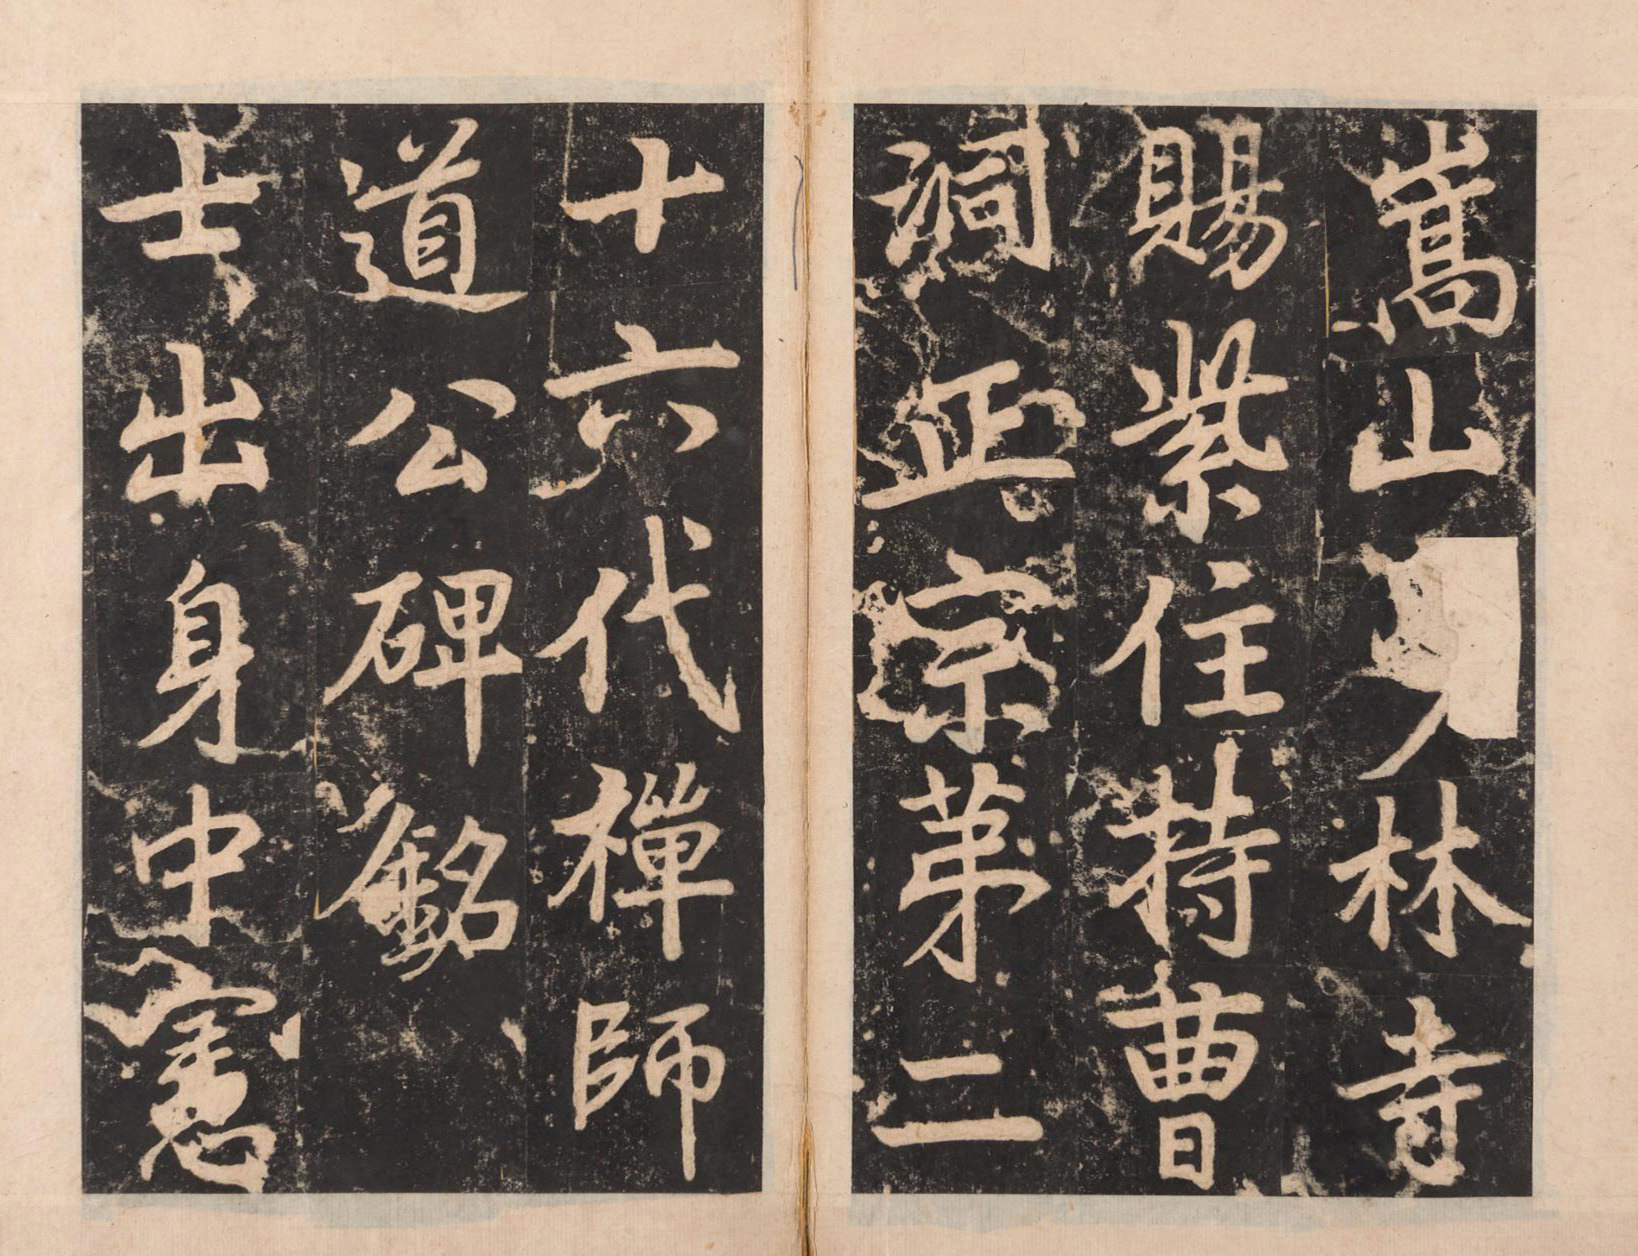 嵩山少林寺
賜紫住持曹
洞正宗第二
十六代禪師
道公碑銘
士出身中憲